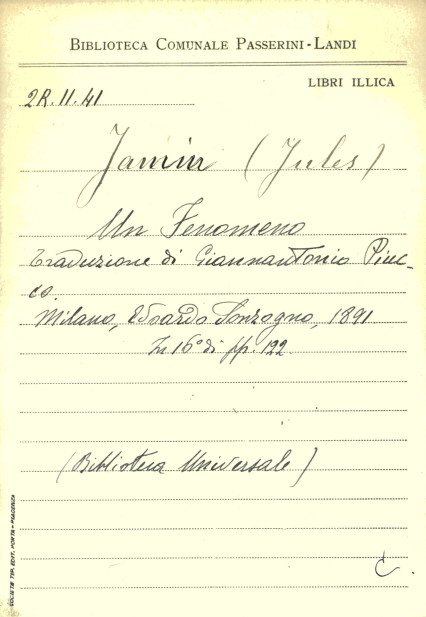 BIBLIOTECA COMUNALE PASSERINI-LANDI
LIBRI ILLICA
2R.II.41
Jamin (Jules)
Un Fenomeno
Traduzione di Giannantonio Piuc-
co.
Milano, Edoardo Sonzogno, 1891
In 16° di pp. 122
(Biblioteca Universale)
C.
SOCIETÀ TIP. EDIT. PORTA - PIACENZA